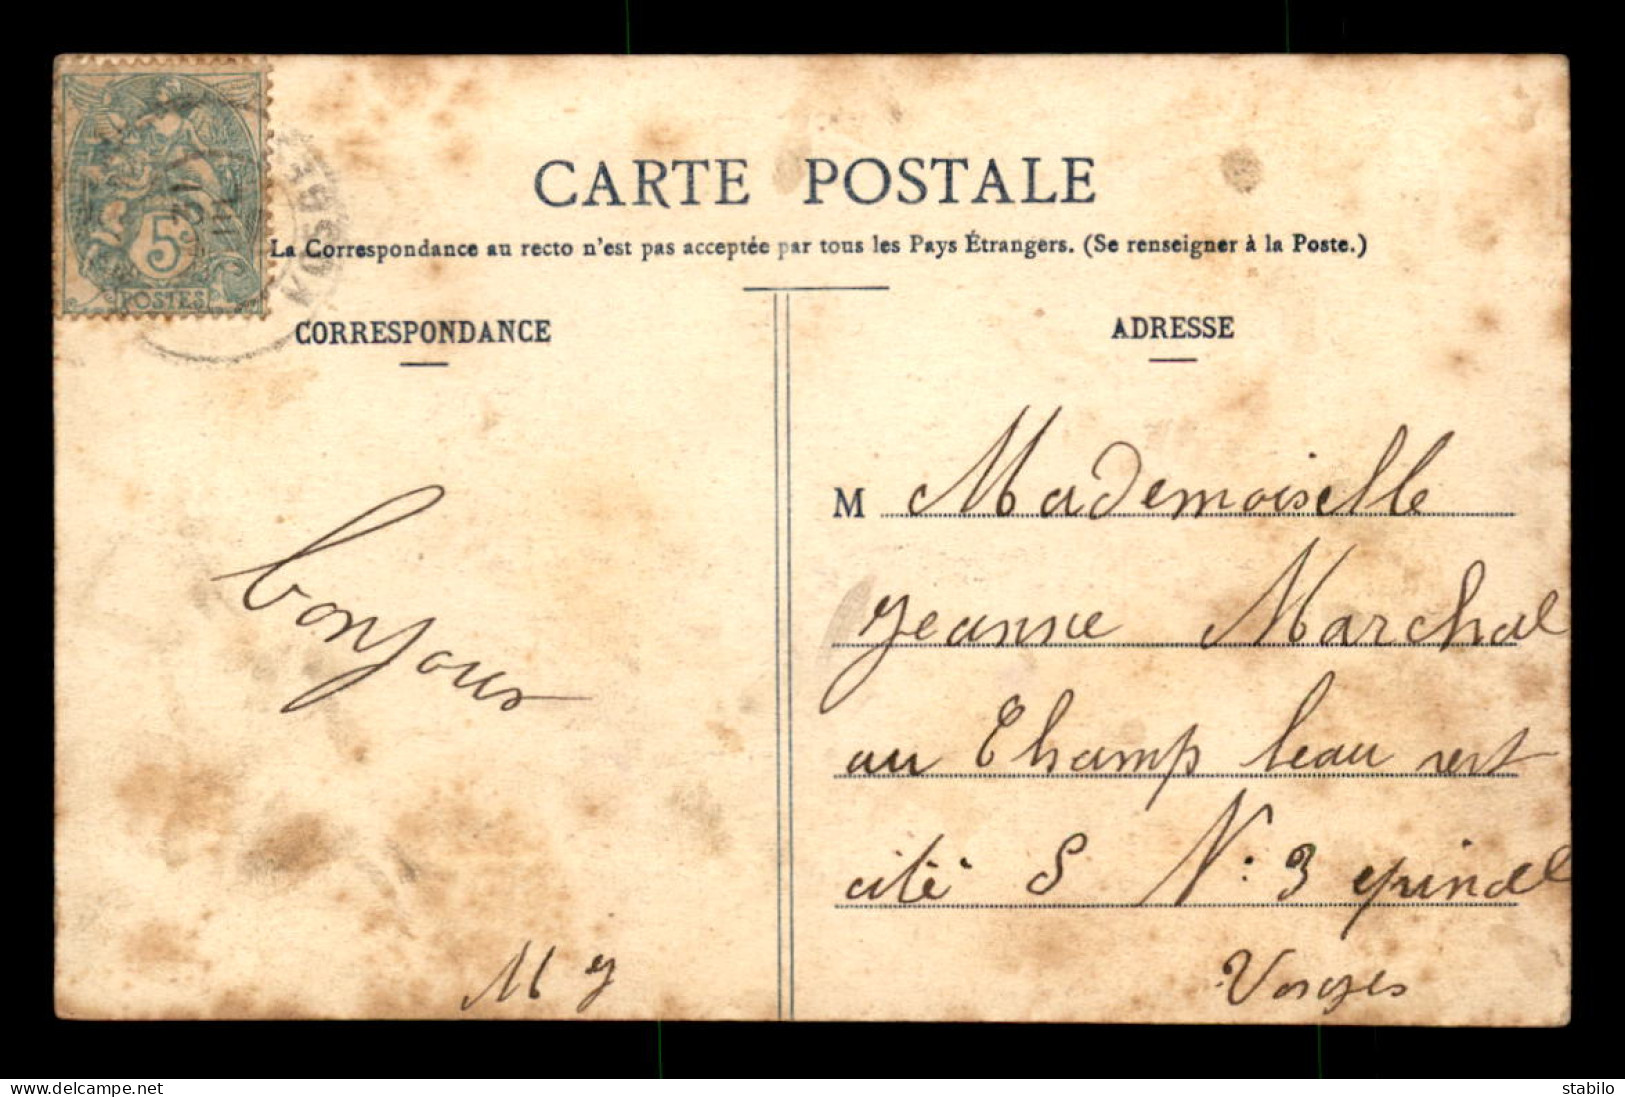 CARTE POSTALE
La Correspondance au recto n'est pas acceptée par tous les Pays Étrangers. (Se renseigner à la Poste.)
5
POSTES
CORRESPONDANCE
bonjour
M y
ADRESSE
M Mademoiselle
Jeanne Marchal
au Champ beau vert
cité S N: 3 epinal
Vosges
delcampe.net
stabilo